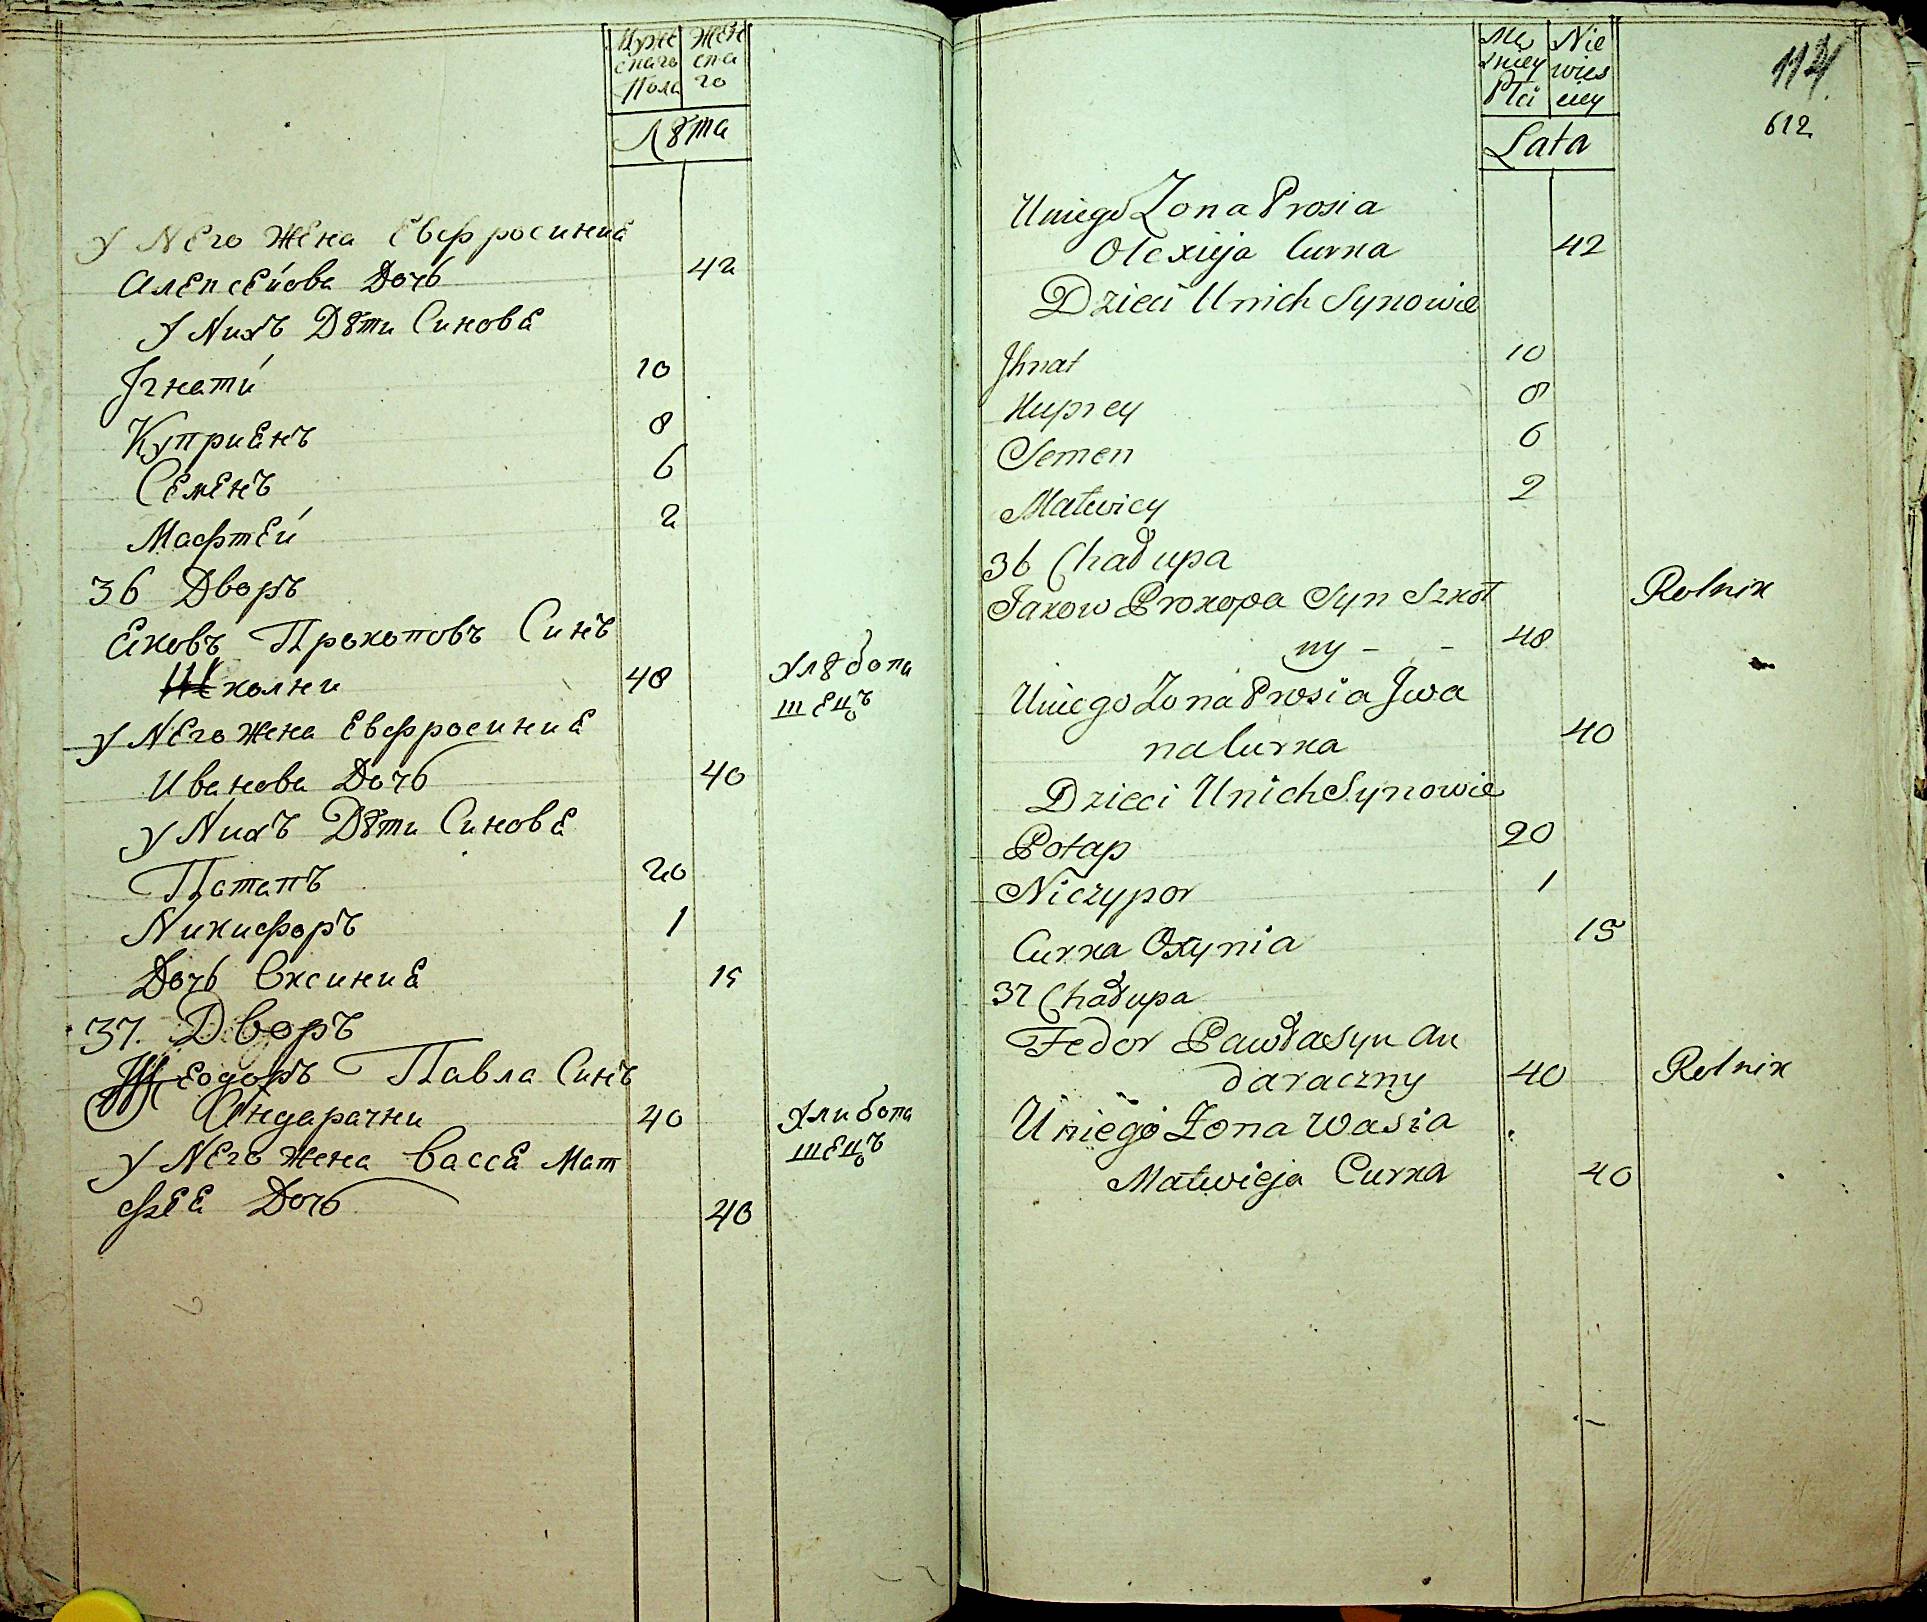 Муже Жен
скаго ска
Пола го
Лѣта
У Него Жена Евфросиниа
Алексейова Дочь 42
У Нихъ Дѣти Синове
Ігнатій 10
Куприанъ 8
Семенъ 6
Мафтей 2
36 Дворъ
Еаковъ Прокоповъ Синъ
Школни 48 Хлѣбопа
шецъ
У Него Жена Евфросиниа
Иванова Дочь 40
У Нихъ Дѣти Синове
Потапъ 20
Никифоръ 1
Дочь Оксиниа 15
37. Дворъ
Ѳеодоръ Павла Синъ
Андарачни 40 Хлибопа
шецъ
У Него Жена Васса Мат
фея Дочь 40
114
612
Mę Nie
zkiey wies
Płci ciey
Lata
Uniego Zona Prosia
Olexieja Curka 42
Dzieci Unich Synowie
Jhnat 10
Kuprey 8
Semen 6
Matwiey 2
36 Chałupa
Jakow Prokopa Syn Szkoł Rolnik
ny - - 48
Uniego Zona Prosia Jwa
na Curka 40
Dzieci Unich Synowie
Potap 20
Niczypor 1
Curka Oxynia 15
37 Chałupa
Fedor Pawła Syn An
daraczny 40 Rolnik
Uniego Zona Wasia
Matwieja Curka 40